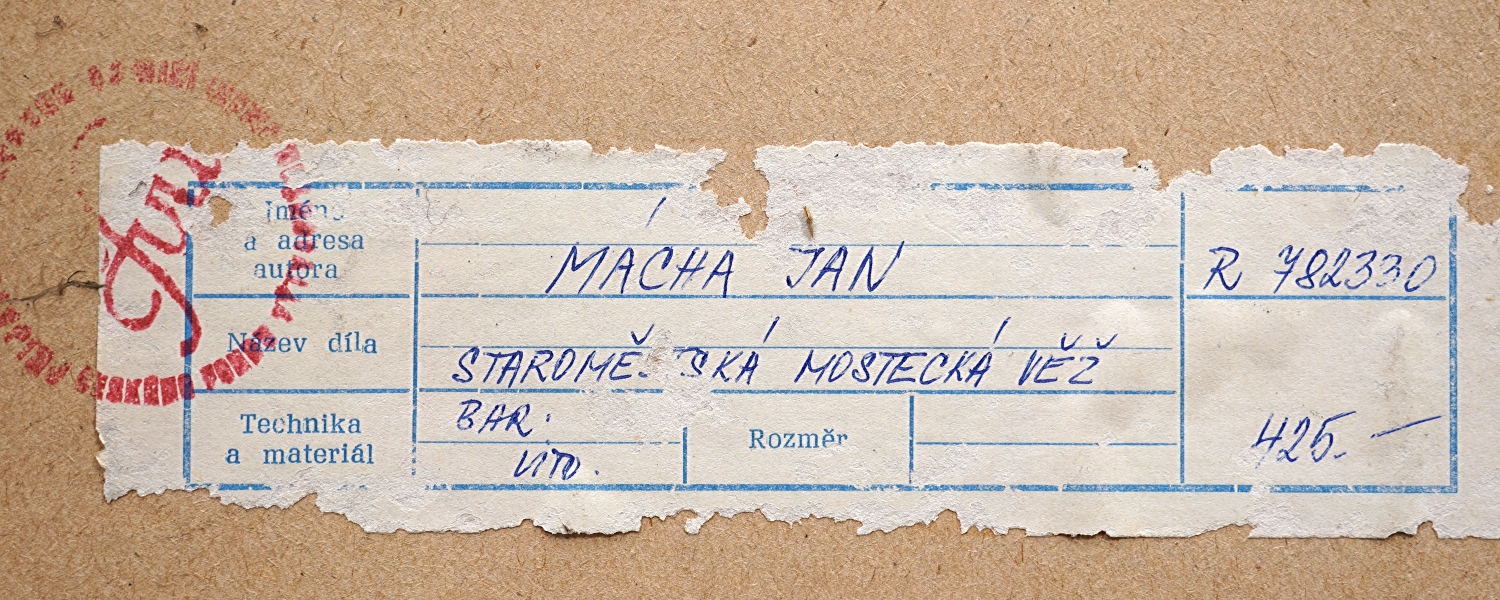 Jméno
a adresa
autora
MÁCHA JAN
R 782330
Název díla
STAROMĚSTSKÁ MOSTECKÁ VĚŽ
Technika
a materiál
BAR.
LITO.
Rozměr
425.—